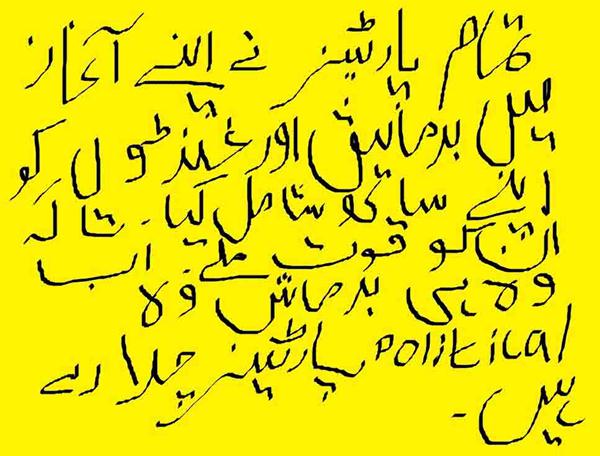 تمام پارٹیز نے اپنے آغاز
میں بدمانیق اور غنڈوں کو
اپنے ساتھ شامل کیا۔ تاکہ
ان کو قوت ملے۔ اب
وہ ہی بدماش وہ
political پارٹیز چلا رہے
ہیں۔